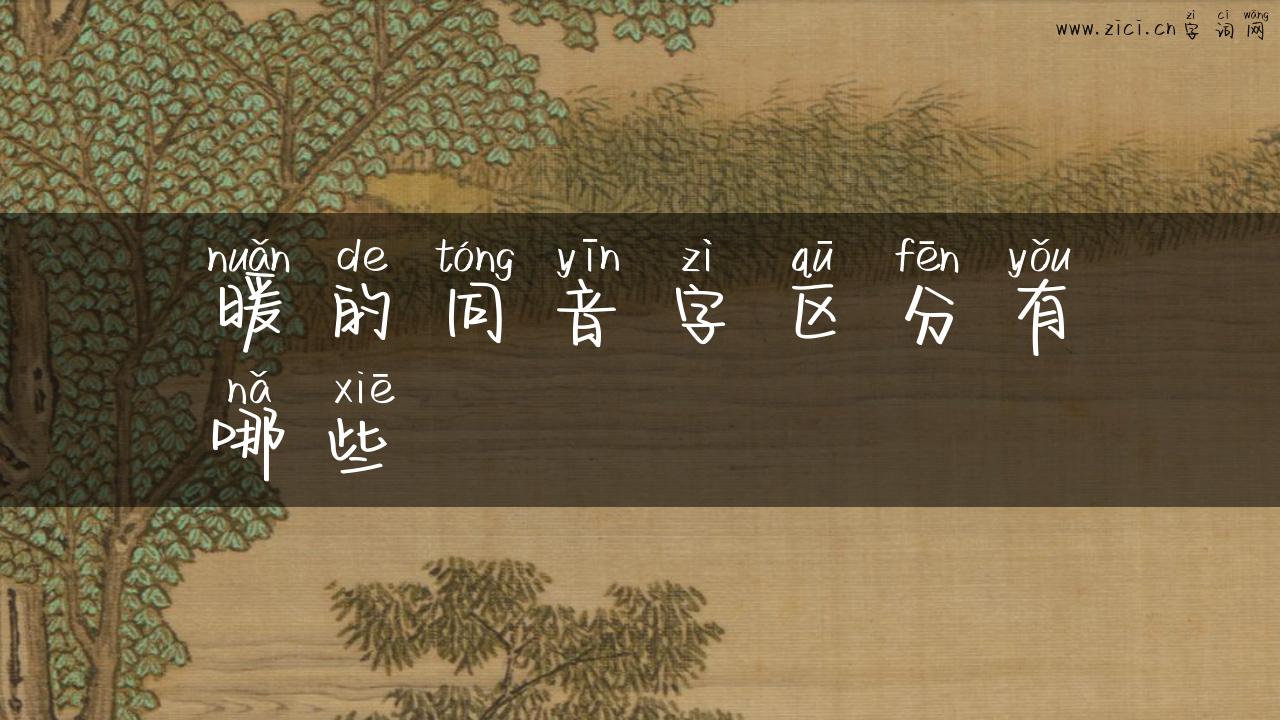 zì cí wǎng
www.zici.cn字词网
nuǎn de tóng yīn zì qū fēn yǒu
暖的同音字区分有
nǎ xiē
哪些